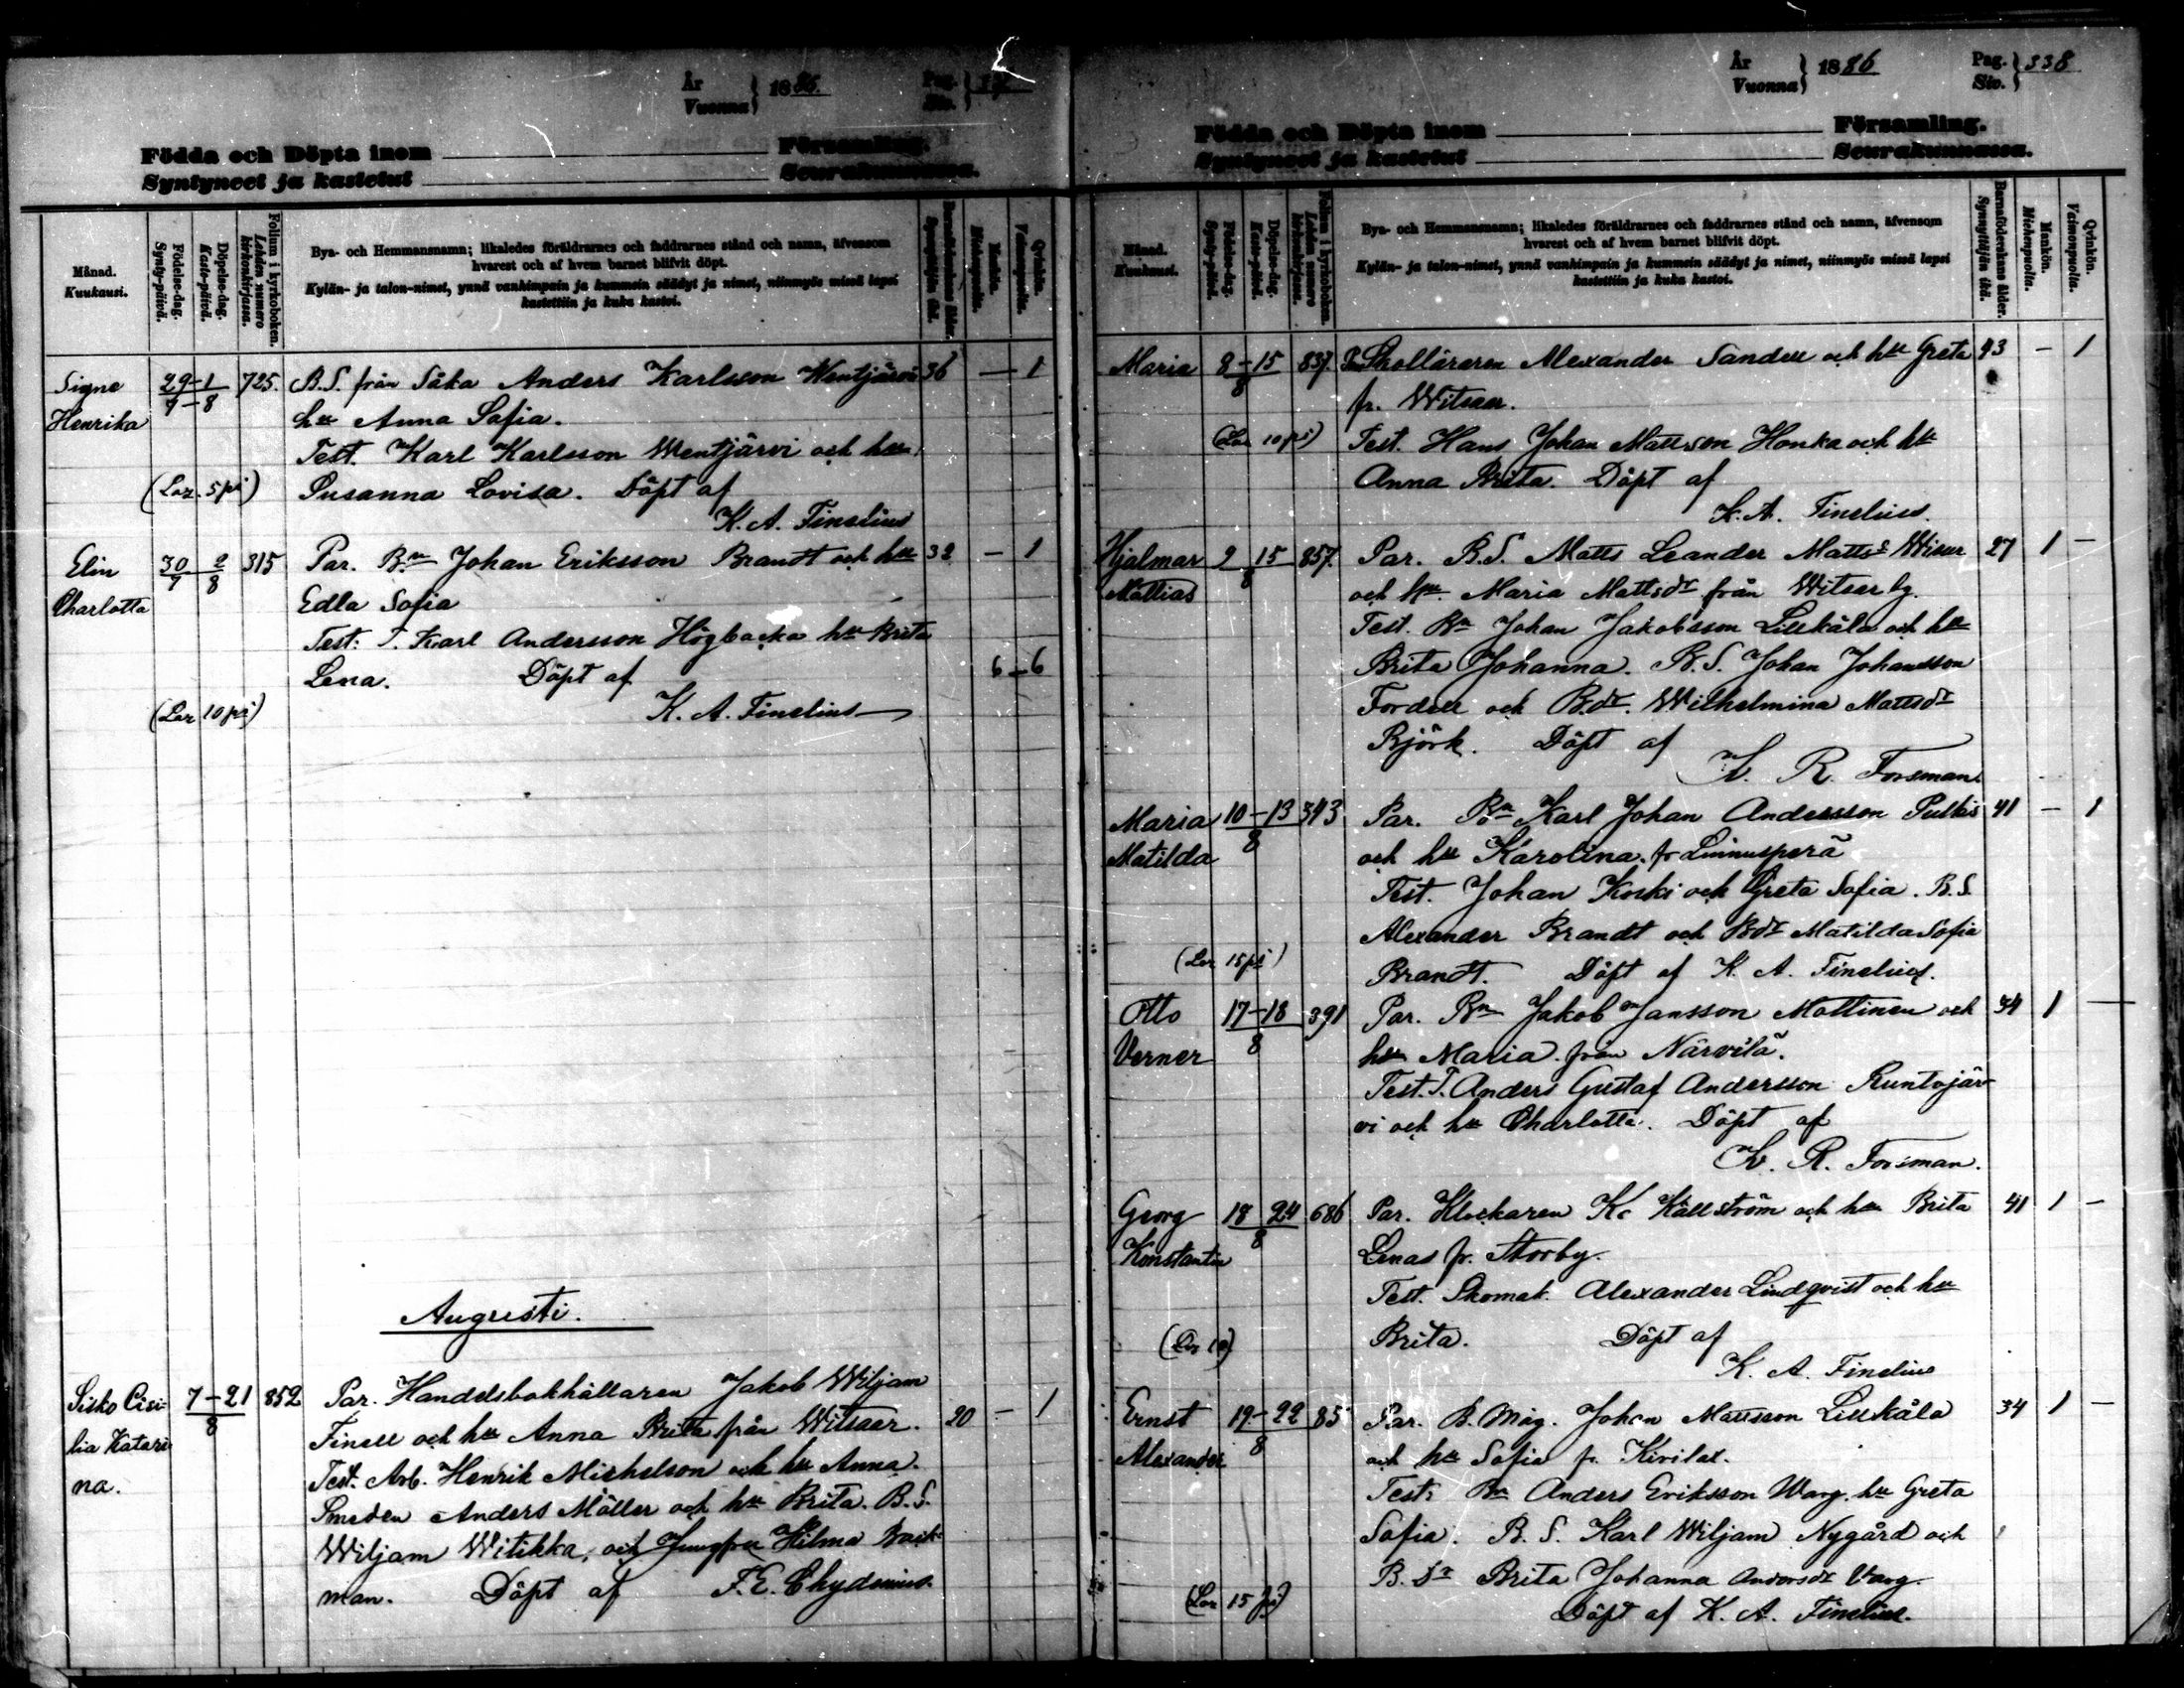 År
Vuonna } 1886. Pag.
Siv. }
Födda och Döpta inom Församling.
Syntyneet ja kastetut Seurakunnassa.
Månad.
Kuukausi.
Födelse-dag.
Synty-päivä.
Döpelse-dag.
Kaste-päivä.
Folium i kyrkoboken.
Lehden numero
kirkonkirjassa.
Bya- och Hemmansnamn; likaledes föräldrarnes och faddrarnes stånd och namn, äfvensom
hvarest och af hvem barnet blifvit döpt.
Kylän- ja talon-nimet, ynnä vanhimpain ja kummein säädyt ja nimet, niinmyös missä lapsi
kastettiin ja kuka kastoi.
Barnaföderskans ålder.
Synnyttäjän ikä.
Mankön.
Miehenpuolia.
Qvinkön.
Vaimonpuolia.
Signe 29-1 725. B.S. från Såka Anders Karlsson Wentjärvi 36 — 1
7-8
Henrika hu Anna Sofia.
Test. Karl Karlsson Wentjärvi och hu
(Lör. 5 pi) Susanna Lovisa. Döpt af
K. A. Finelius
Elin 30 2 315 Par. Bn Johan Eriksson Brandt och hu 32 — 1
7 8
Charlotta Edla Sofia
Test: T. Karl Andersson Högbacka hu Brita
Lena. Döpt af 6-6
(Lör 10 pi) K. A. Finelius
Augusti.
Sisko Cisi- 7-21 852 Par. Handelsbokhållaren Jakob Wiljam
8
lia Katari Finell och hu Anna Brita från Witsar. 20 — 1
na. Test. Arb. Henrik Michelson och hu Anna.
Smeden Anders Möller och hu Brita. B.S.
Wiljam Witikka, och Jungfru Hilma Back-
man. Döpt af F. E. Chydenius.
År
Vuonna } 1886 Pag.
Siv. } 338
Födda och Döpta inom Församling.
Syntyneet ja kastetut Seurakunnassa.
Månad.
Kuukausi.
Födelse-dag.
Synty-päivä.
Döpelse-dag.
Kaste-päivä.
Folium i kyrkoboken.
Lehden numero
kirkonkirjassa.
Bya- och Hemmansnamn; likaledes föräldrarnes och faddrarnes stånd och namn, äfvensom
hvarest och af hvem barnet blifvit döpt.
Kylän- ja talon-nimet, ynnä vanhimpain ja kummein säädyt ja nimet, niinmyös missä lapsi
kastettiin ja kuka kastoi.
Barnaföderskans ålder.
Synnyttäjän ikä.
Mankön.
Miehenpuolia.
Qvinkön.
Vaimonpuolia.
Maria 8-15 837. Skolläraren Alexander Sandell och hu Greta 43 — 1
8
fr. Witsar.
(Lör 10 pi) Test. Hans Johan Mattsson Honka och hu
Anna Brita. Döpt af
K. A. Finelius.
Hjalmar 9 15 857. Par. B.S. Matts Leander Matts s Wiser 27 1 —
8
Mattias och hu. Maria Mattsdr från Witsar by.
Test. Bn Johan Jakobsson Lillkåla och hu
Brita Johanna. B.S. Johan Johansson
Fordell och B.dr. Wilhelmina Mattsdr
Björk. Döpt af
K. R. Forsman.
Maria 10-13 343 Par. Bn Karl Johan Andersson Pulkis 41 — 1
8
Matilda och hu Karolina. fr Linnusperä
Test. Johan Koski och Greta Sofia. B.S.
Alexander Brandt och Bdr Matilda Sofia
(Lör 15 pi) Brandt. Döpt af K. A. Finelius.
Otto 17-18 391 Par. Bn Jakob Jansson Mattinen och 34 1 —
8
Verner hu Maria från Närvilä.
Test. T. Anders Gustaf Andersson Runtojär-
vi och hu Charlotta. Döpt af
K. R. Forsman.
Georg 18 24 686 Par. Klockaren K. Källström och hu Brita 41 1 —
8
Konstantin Lenas fr. Storby.
Test. Skomak. Alexander Lindqvist och hu
(Lör 10) Brita. Döpt af
K. A. Finelius
Ernst 19-22 85 Par. B. Måg. Johan Mattsson Lillkåla 34 1 —
8
Alexander och hu Sofia fr. Kivilax.
Test: Bn Anders Eriksson Warg. hu Greta
Sofia. B.S. Karl Wiljam Nygård och
B. dr Brita Johanna Andersdr Varg.
(Lör 15 pi) Döpt af K. A. Finelius.